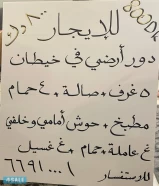 ٨٠٠ د.ك
800DK
للإيجار
دور أرضي في خيطان
٥ غرف + صالة + ٤ حمام
مطبخ + حوش أمامي وخلفي
غ عاملة + حمام + غ غسيل
للاستفسار
٦٦٩١٠٠٠١